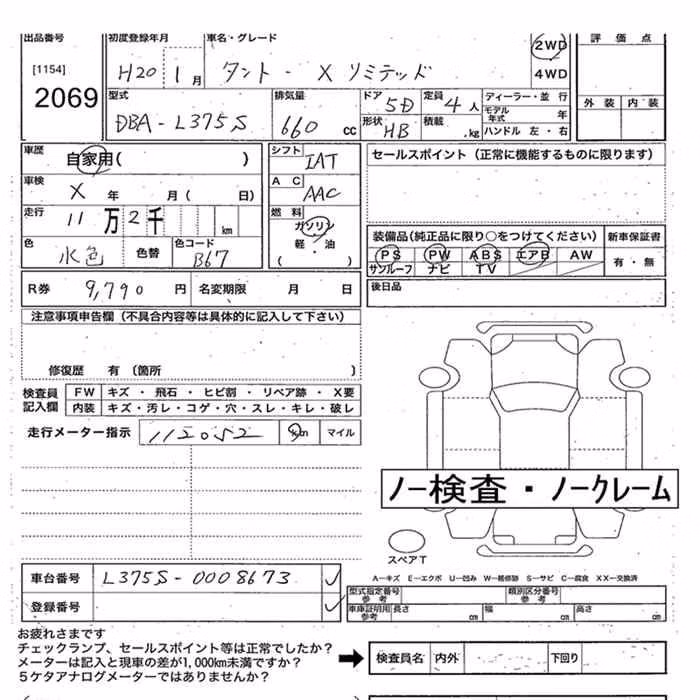 出品番号 初度登録年月 車名・グレード 評価点
[1154] H20 1月 タント - X リミテッド 2WD
4WD
2069 型式 排気量 ドア 5D 定員 4人 ディーラー・並行 外装 内装
DBA-L375S 660 cc 形状 HB 積載 .kg モデル年式 年
ハンドル 左・右
車歴 自家用( ) シフト IAT セールスポイント(正常に機能するものに限ります)
車検 X 年 月( 日) AC AAC
走行 11万2千 km 燃料 ガソリン 軽・油 ( )
装備品(純正品に限り○をつけてください) 新車保証書
色 水色 色替 色コード B67 PS PW ABS エアB AW 有・無
サンルーフ ナビ TV
R券 9,790円 名変期限 月 日 後日品
注意事項申告欄(不具合内容等は具体的に記入して下さい)
修復歴 有(箇所 )
検査員記入欄 FW キズ・飛石・ヒビ割・リペア跡・X要
内装 キズ・汚レ・コゲ・穴・スレ・キレ・破レ
走行メーター指示 112052 km マイル
ノー検査・ノークレーム
スペアT
車台番号 L375S-0008673 ✓
A―キズ E―エクボ U―凹み W―補修跡 S―サビ C―腐食 XX―交換済
登録番号 ✓
型式指定番号 参考 類別区分番号 参考
車庫証明用 参考 長さ cm 幅 cm 高さ cm
お疲れさまです
チェックランプ、セールスポイント等は正常でしたか?
メーターは記入と現車の差が1,000km未満ですか?
5ケタアナログメーターではありませんか?
➡ 検査員名 内外 下回り